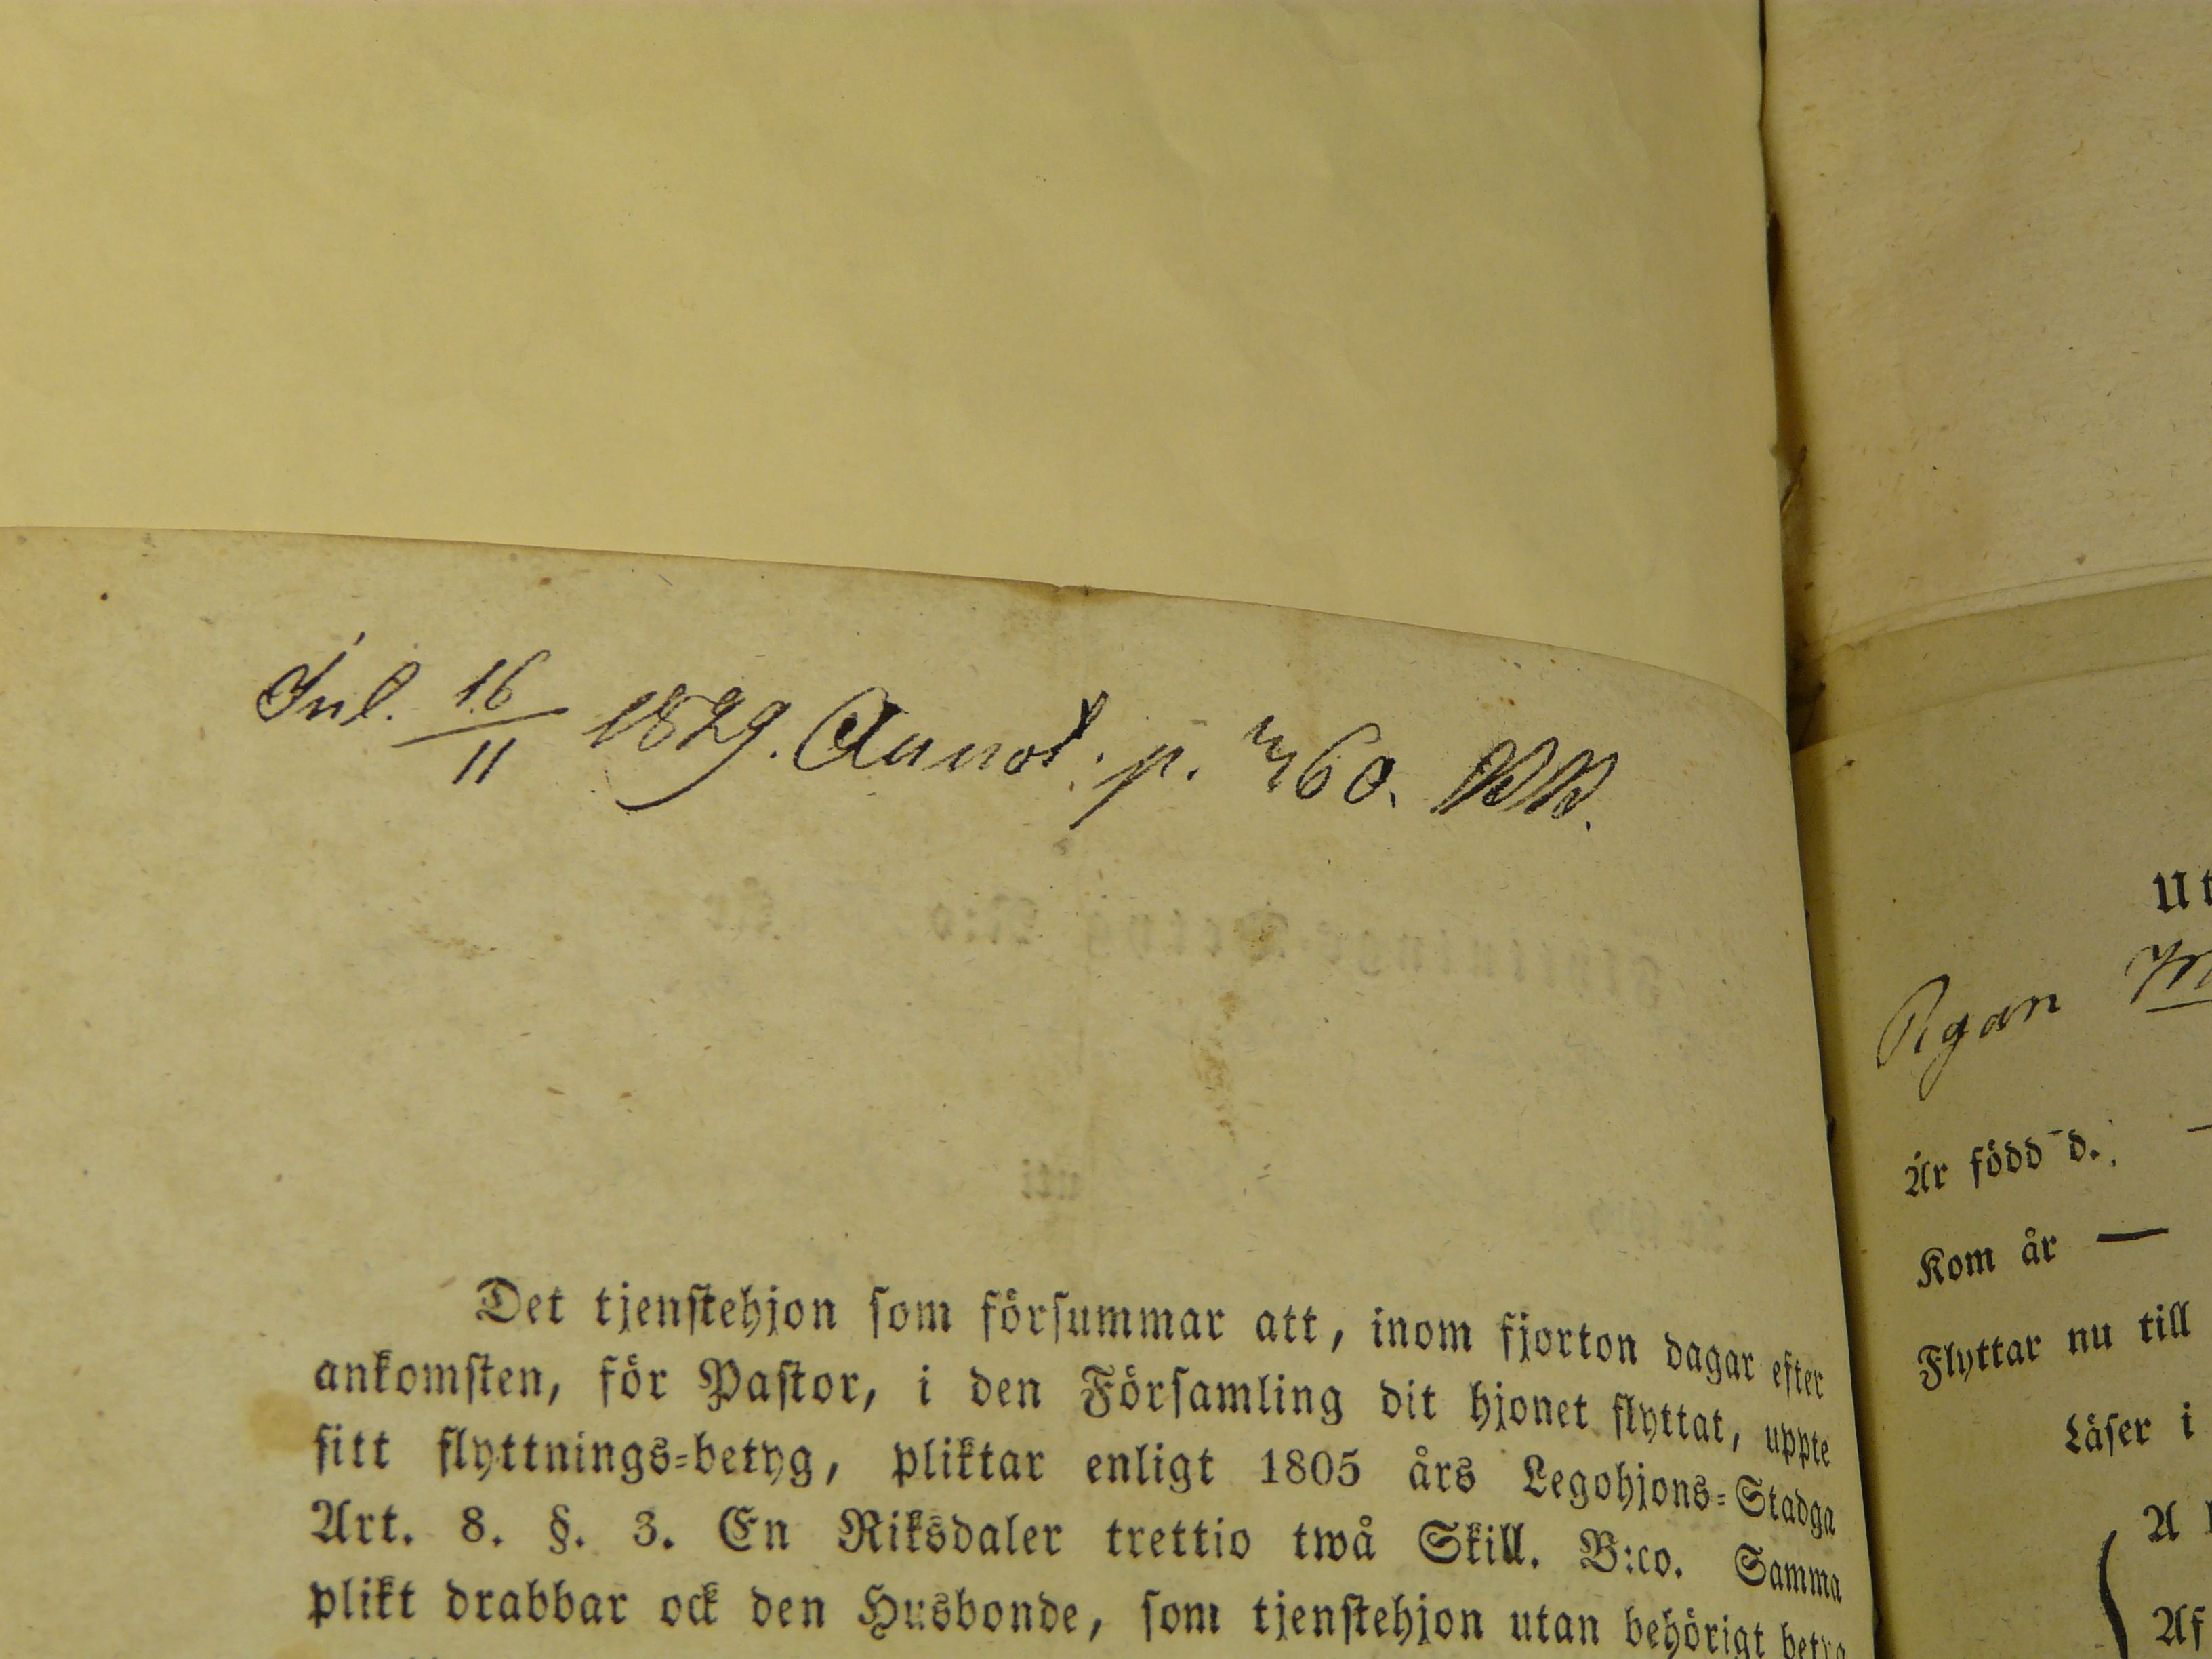 Inl. 16/11 1829. Annot. p. 360.
Det tjenstehjon som försummar att, inom fjorton dagar efter
ankomsten, för Pastor, i den Församling dit hjonet flyttat, uppte
sitt flyttnings=betyg, pliktar enligt 1805 års Legohjons=Stadga
Art. 8. §. 3. En Riksdaler trettio twå Skill. B:co. Samma
plikt drabbar ock den Husbonde, som tjenstehjon utan behörigt
Ut
Är född d.
Kom år —
Flyttar nu till
Läser i
Af